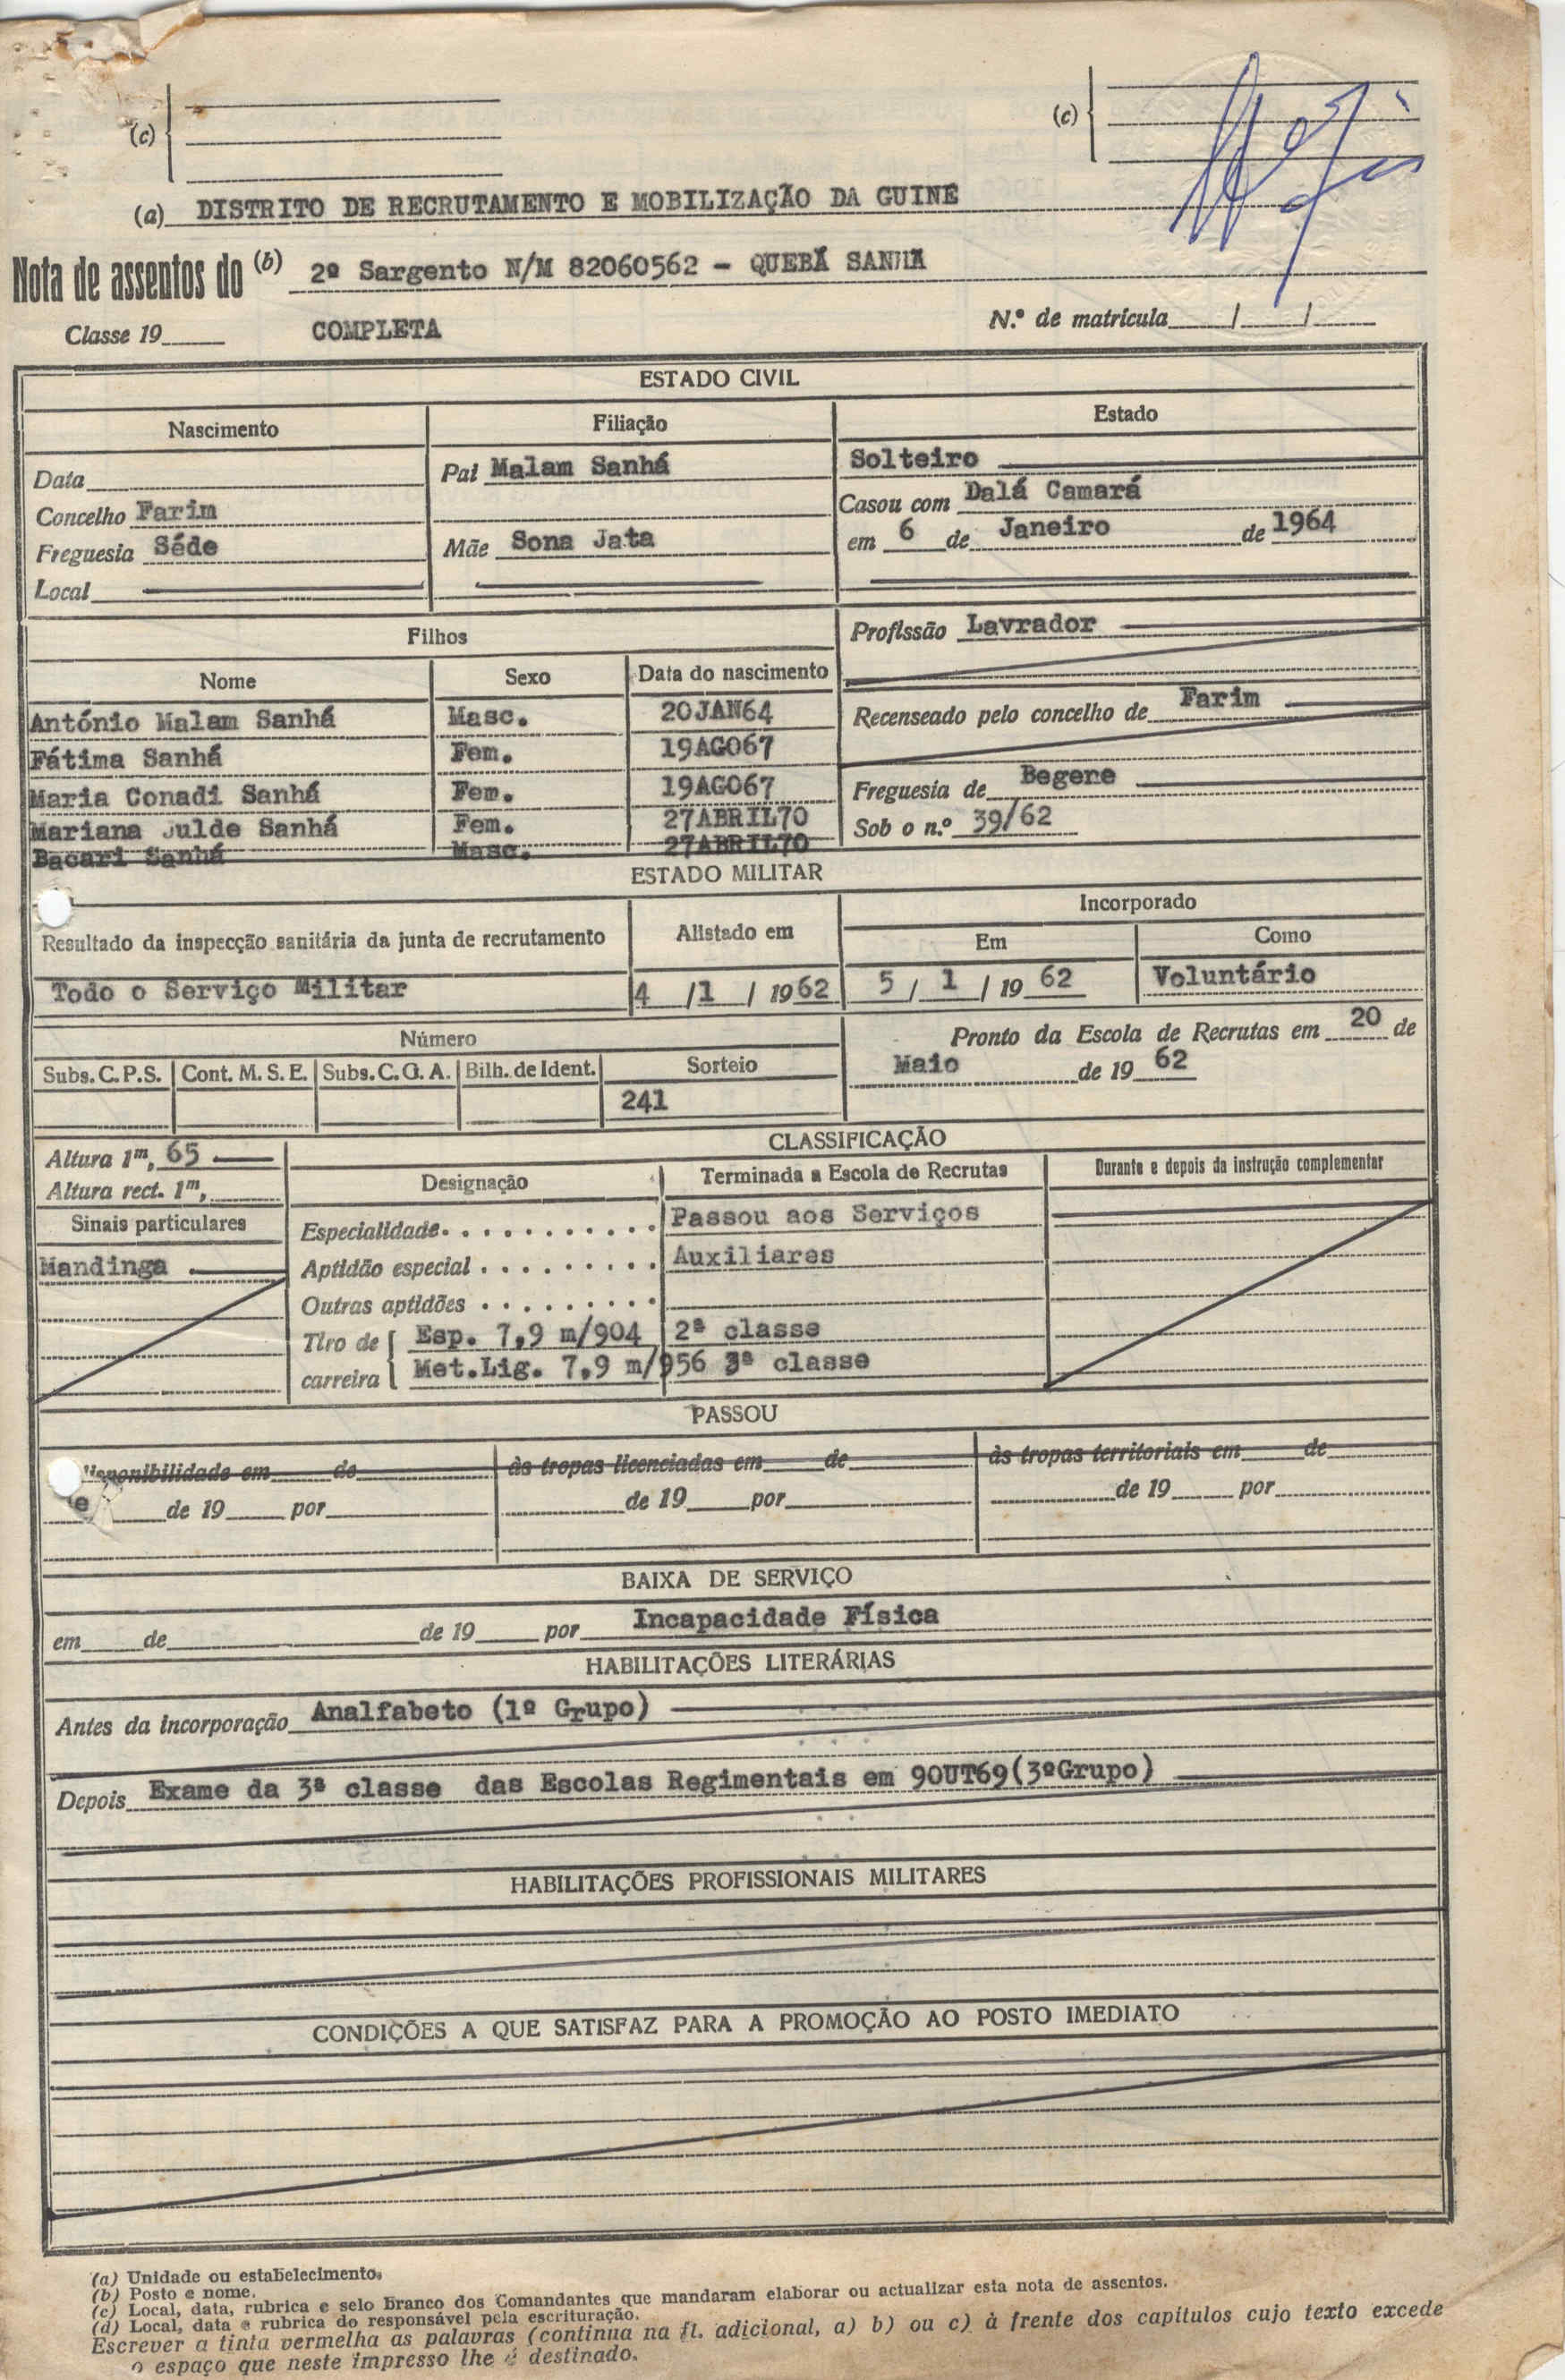 (c)
(c)
(a) DISTRITO DE RECRUTAMENTO E MOBILIZAÇÃO DA GUINÉ
Nota de assentos do (b) 2º Sargento N/M 82060562 - QUEBÁ SANHÁ
Classe 19 COMPLETA N.º de matrícula / /
ESTADO CIVIL
Nascimento Filiação Estado
Data Pai Malam Sanhá Solteiro
Concelho Farim Casou com Dalá Camará
Freguesia Séde Mãe Sona Jata em 6 de Janeiro de 1964
Local
Filhos Profissão Lavrador
Nome Sexo Data do nascimento
António Malam Sanhá Masc. 20JAN64 Recenseado pelo concelho de Farim
Fátima Sanhá Fem. 19AGO67
Maria Conadi Sanhá Fem. 19AGO67 Freguesia de Begene
Mariana Julde Sanhá Fem. 27ABRIL70 Sob o n.º 39/62
Bacari Sanhá Masc. 27ABRIL70
ESTADO MILITAR
Resultado da inspecção sanitária da junta de recrutamento Alistado em Incorporado
Em Como
Todo o Serviço Militar 4 /1 / 1962 5 / 1 / 19 62 Voluntário
Número Pronto da Escola de Recrutas em 20 de
Subs. C. P. S. Cont. M. S. E. Subs. C. G. A. Bilh. de Ident. Sorteio Maio de 19 62
241
CLASSIFICAÇÃO
Altura 1m, 65
Altura rect. 1m, Designação Terminada a Escola de Recrutas Durante e depois da instrução complementar
Sinais particulares Especialidade. . . . . . . . . . . . Passou aos Serviços
Mandinga Aptidão especial . . . . . . . . . Auxiliares
Outras aptidões . . . . . . . . .
Tiro de Esp. 7,9 m/904 2ª classe
carreira Met.Lig. 7,9 m/956 3ª classe
PASSOU
disponibilidade em de às tropas licenciadas em de às tropas territoriais em de
de 19 por de 19 por de 19 por
BAIXA DE SERVIÇO
em de de 19 por Incapacidade Física
HABILITAÇÕES LITERÁRIAS
Antes da incorporação Analfabeto (1º Grupo)
Depois Exame da 3ª classe das Escolas Regimentais em 9OUT69(3ºGrupo)
HABILITAÇÕES PROFISSIONAIS MILITARES
CONDIÇÕES A QUE SATISFAZ PARA A PROMOÇÃO AO POSTO IMEDIATO
(a) Unidade ou estabelecimento.
(b) Posto e nome.
(c) Local, data, rubrica e selo branco dos Comandantes que mandaram elaborar ou actualizar esta nota de assentos.
(d) Local, data e rubrica do responsável pela escrituração.
Escrever a tinta vermelha as palavras (continua na fl. adicional, a) b) ou c) à frente dos capítulos cujo texto excede
o espaço que neste impresso lhe é destinado.